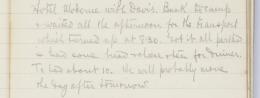 Hotel Ukraine with Davis. Back to camp
& waited all the afternoon for the transport
which turned up at 7.30. Got it all parked
& had some bread when for dinner.
To bed about 10. We will probably move
the day after tomorrow.